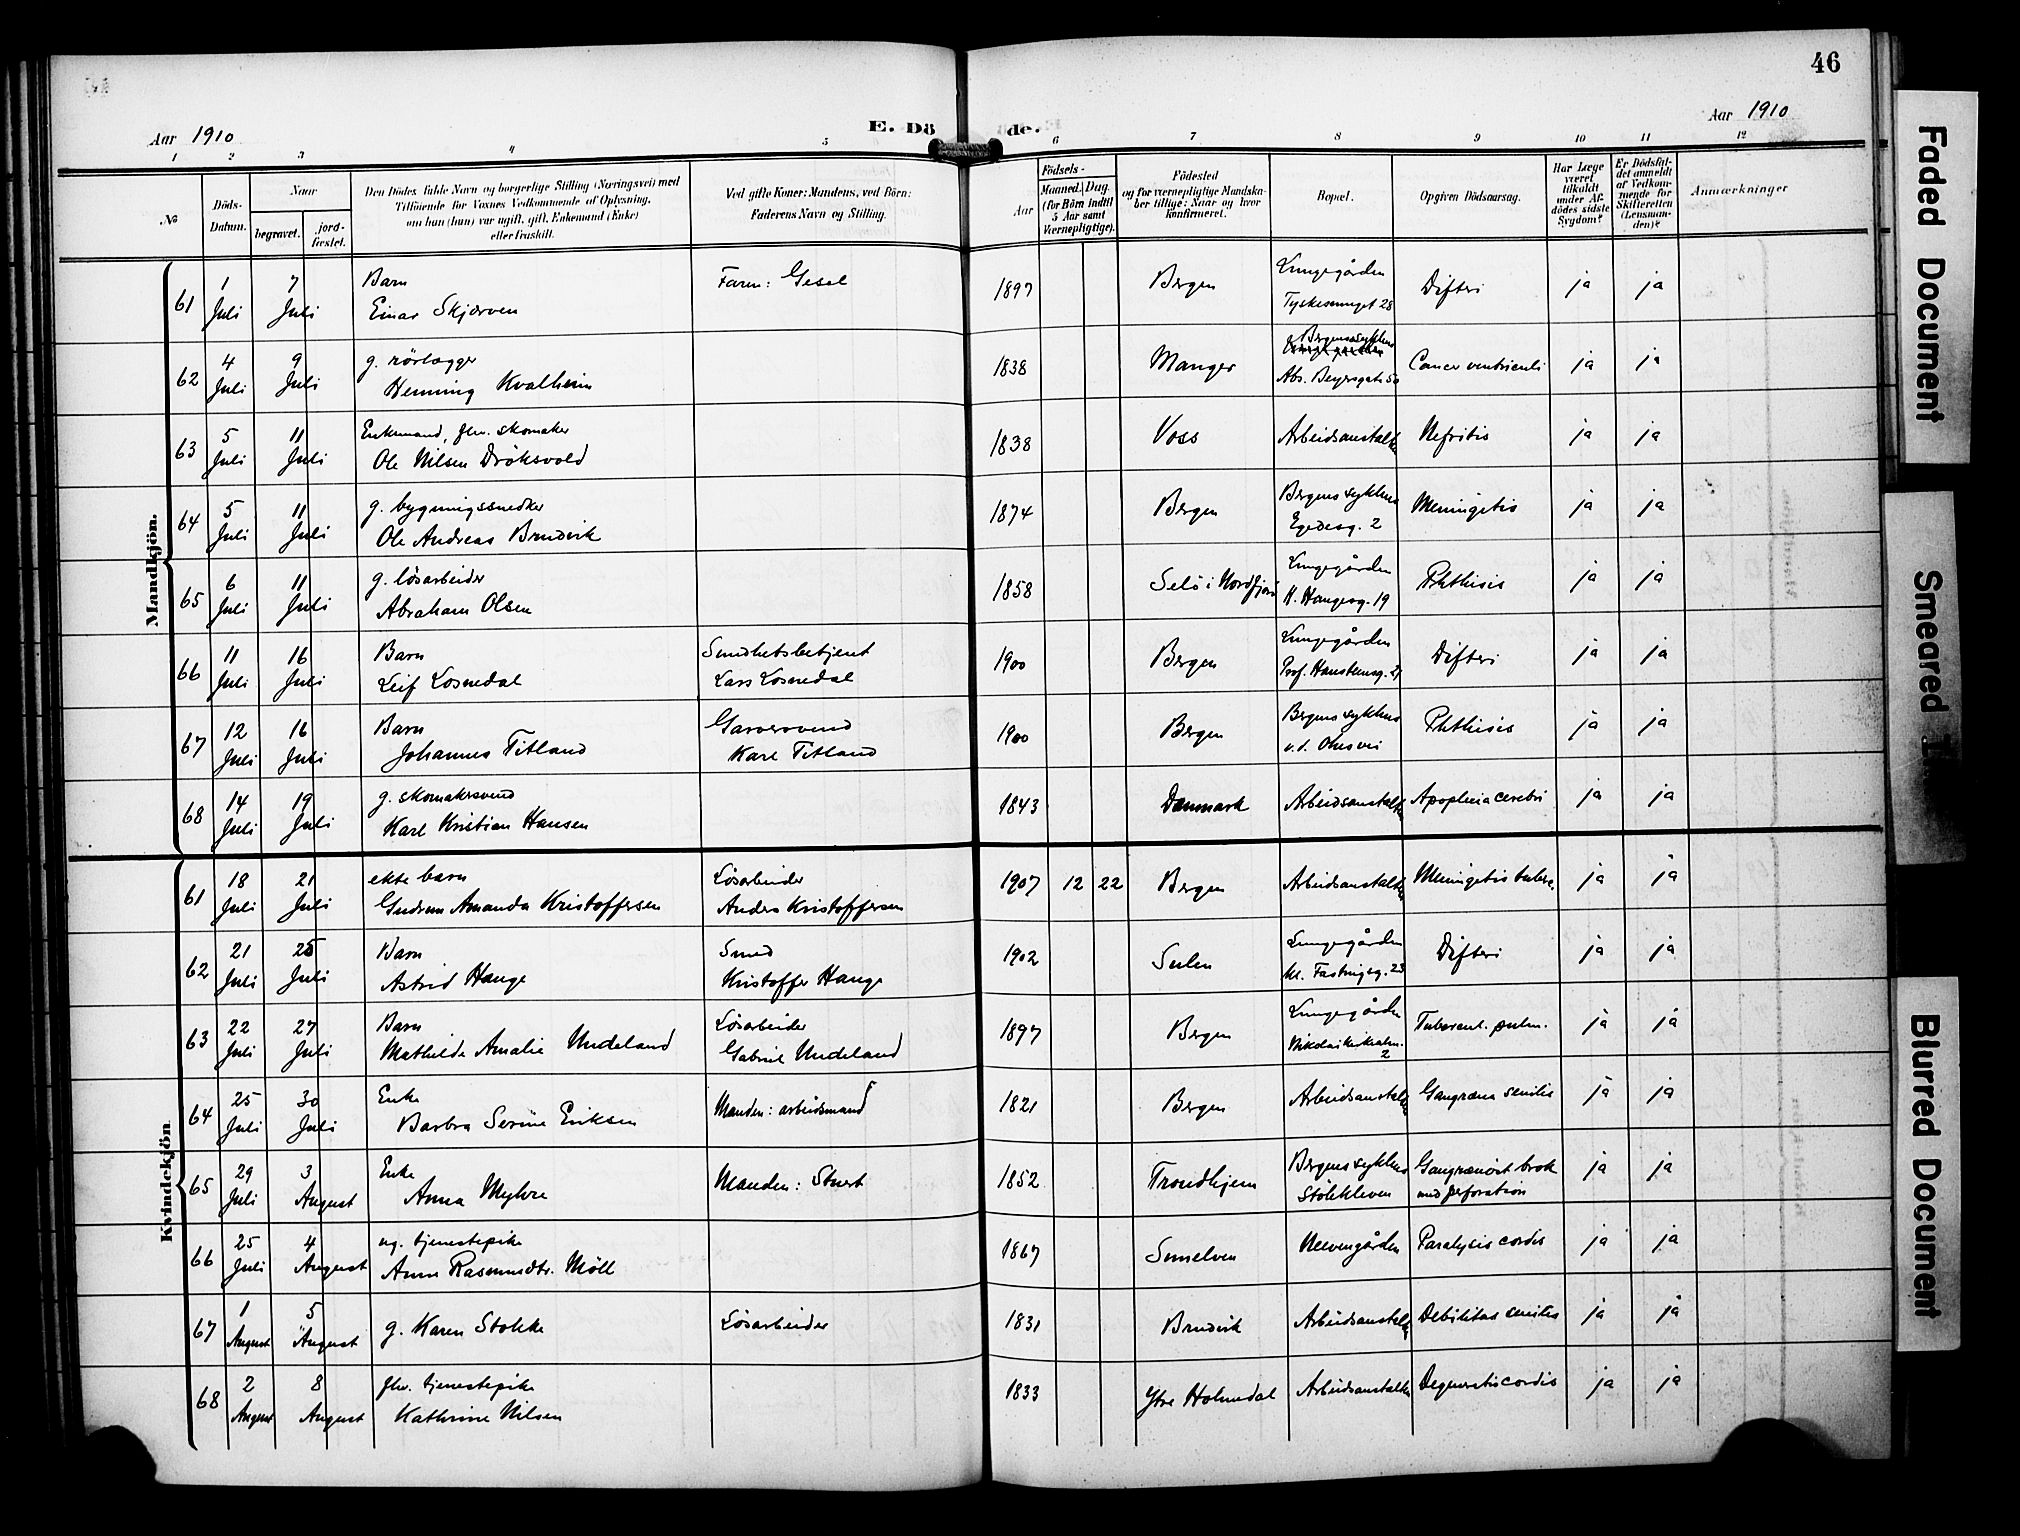 46
Aar 1910
E. Dö
de.
Aar 1910
1 2 3 4 5 6 7 8 9 10 11 12
№
Döds-Datum.
Naar
begravet.
jord-fæstet.
Den Dödes fulde Navn og borgerlige Stilling (Næringsvei) med
Tilföiende for Voxnes Vedkommende af Oplysning,
om han (hun) var ugift, gift, Enkemand (Enke)
eller fraskilt.
Ved gifte Koner: Mandens, ved Börn:
Faderens Navn og Stilling.
Aar
Födsels-
Maaned. Dag.
(for Börn indtil 5 Aar samt Værnepligtige).
Födested
og for værnepligtige Mandska-
ber tillige: Naar og hvor
konfirmeret.
Bopæl.
Opgiven Dödsaarsag.
Har Læge været tilkaldt under Af-dödes sidste Sygdom?
Er Dödsfal-det anmeldt af Vedkom-mende for Skifteretten (Lensman-den)?
Anmærkninger
Mandkjön.
61 1 Juli 7 Juli Barn Einar Skjerven Faren: Gesel 1897 Bergen Lungegården Tyskesmuget 28 Difteri ja ja
62 4 Juli 9 Juli g. rörlægger Henning Kvalheim 1838 Manger Bergens sykhus Abs. Beyersgate 50 Cancer ventriculi ja ja
63 5 Juli 11 Juli Enkemand, fhv. skomaker Ole Nilsen Dröksvold 1838 Voss Arbeidsanstalten Nefritis ja ja
64 5 Juli 11 Juli g. bygningssnedker Ole Andreas Bruvik 1874 Bergen Bergens sykhus Egedesg. 2 Meningitis ja ja
65 6 Juli 11 Juli g. lösarbeider Abraham Olsen 1858 Selö i Nordfjord Lungegården H. Haugesg. 19 Phthisis ja ja
66 11 Juli 16 Juli Barn Leif Losnedal Sundhetsbetjent Lars Losnedal 1900 Bergen Lungegården Prof. Hansteensg. Difteri ja ja
67 12 Juli 16 Juli Barn Johannes Titland Garversvend Karl Titland 1900 Bergen Bergens sykhus Phthisis ja ja
68 14 Juli 19 Juli g. skomakersvend Karl Kristian Hansen 1843 Danmark Arbeidsanstalten Apoplexia cerebri ja ja
Kvindekjön
61 18 Juli 21 Juli ekte barn Gudrun Amanda Kristoffersen Lösarbeider Anders Kristoffersen 1907 12 22 Bergen Arbeidsanstalten Meningitis tuberc. ja ja
62 21 Juli 25 Juli Barn Astrid Hauge Smed Kristoffer Hauge 1902 Sulen Lungegården kl. Fastingsg. 23 Difteri ja ja
63 22 Juli 27 Juli Barn Mathilde Amalie Undeland Lösarbeider Gabriel Undeland 1897 Bergen Lungegården Nikolaikirkealm. 2 Tubercul. pulm. ja ja
64 25 Juli 30 Juli Enke Barbra Serine Eriksen Manden: arbeidsmand 1821 Bergen Arbeidsanstalten Gangræna senilis ja ja
65 29 Juli 3 August Enke Anna Myhre Manden: Stuert 1852 Trondhjem Bergens sykhus Stölekleven Gangrænöst brok med perforation ja ja
66 25 Juli 4 August ug. tjenestepike Anna Rasmusdtr. Möll 1867 Sunelven Neevengården Paralysis cordis ja ja
67 1 August 5 August g. Karen Stokke Lösarbeider 1831 Bruvik Arbeidsanstalten Debilitas senilis ja ja
68 2 August 8 August fhv. tjenestepike Kathrine Nilsen 1833 Ytre Holmedal Arbeidsanstalten Degeneratio cordis ja ja
Faded Document
Smeared
Blurred Document